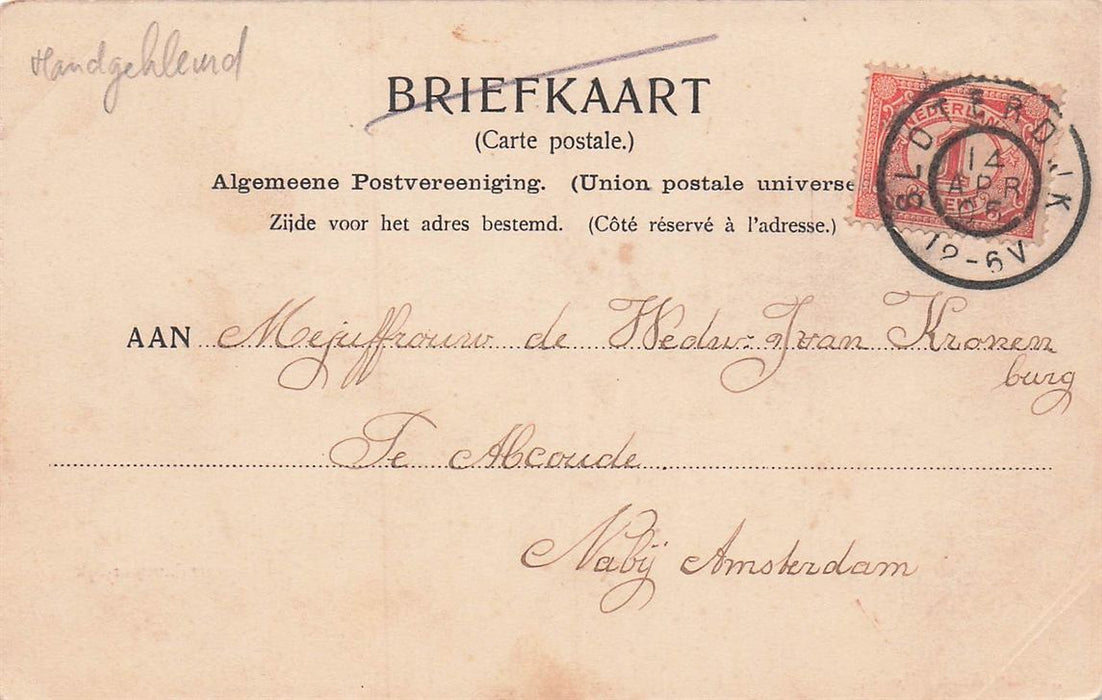 Handgekleurd
BRIEFKAART
(Carte postale.)
Algemeene Postvereeniging. (Union postale universe
Zijde voor het adres bestemd. (Côté réservé à l'adresse.)
NEDERLAND
1
SLOTERDIJK
14
APR
06
12-6V
AAN Mejuffrouw de Wedw: J van Kronen
burg
Te Abcoude.
Nabij Amsterdam